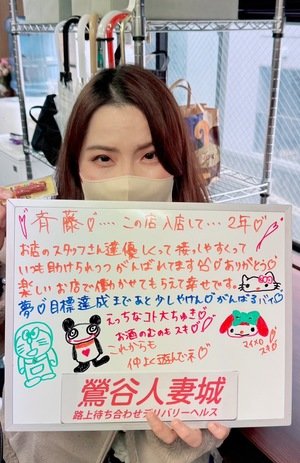 斉藤♡‥‥この店入店して‥‥2年♡
お店のスタッフさん達優しくって接っしやすくって
いつも助けられっつがんばれてます♡ありがとう♡
楽しいお店で働かせてもらえて幸せです。
夢♡目標達成まであと少しやけん♡がんばるバイ♡
えっちなコト大ちゅき♡
お酒のむのもスキ♡
これからも
仲よく遊んでネ♡
マイメロ
スキ♡
鶯谷人妻城
路上待ち合わせデリバリーヘルス